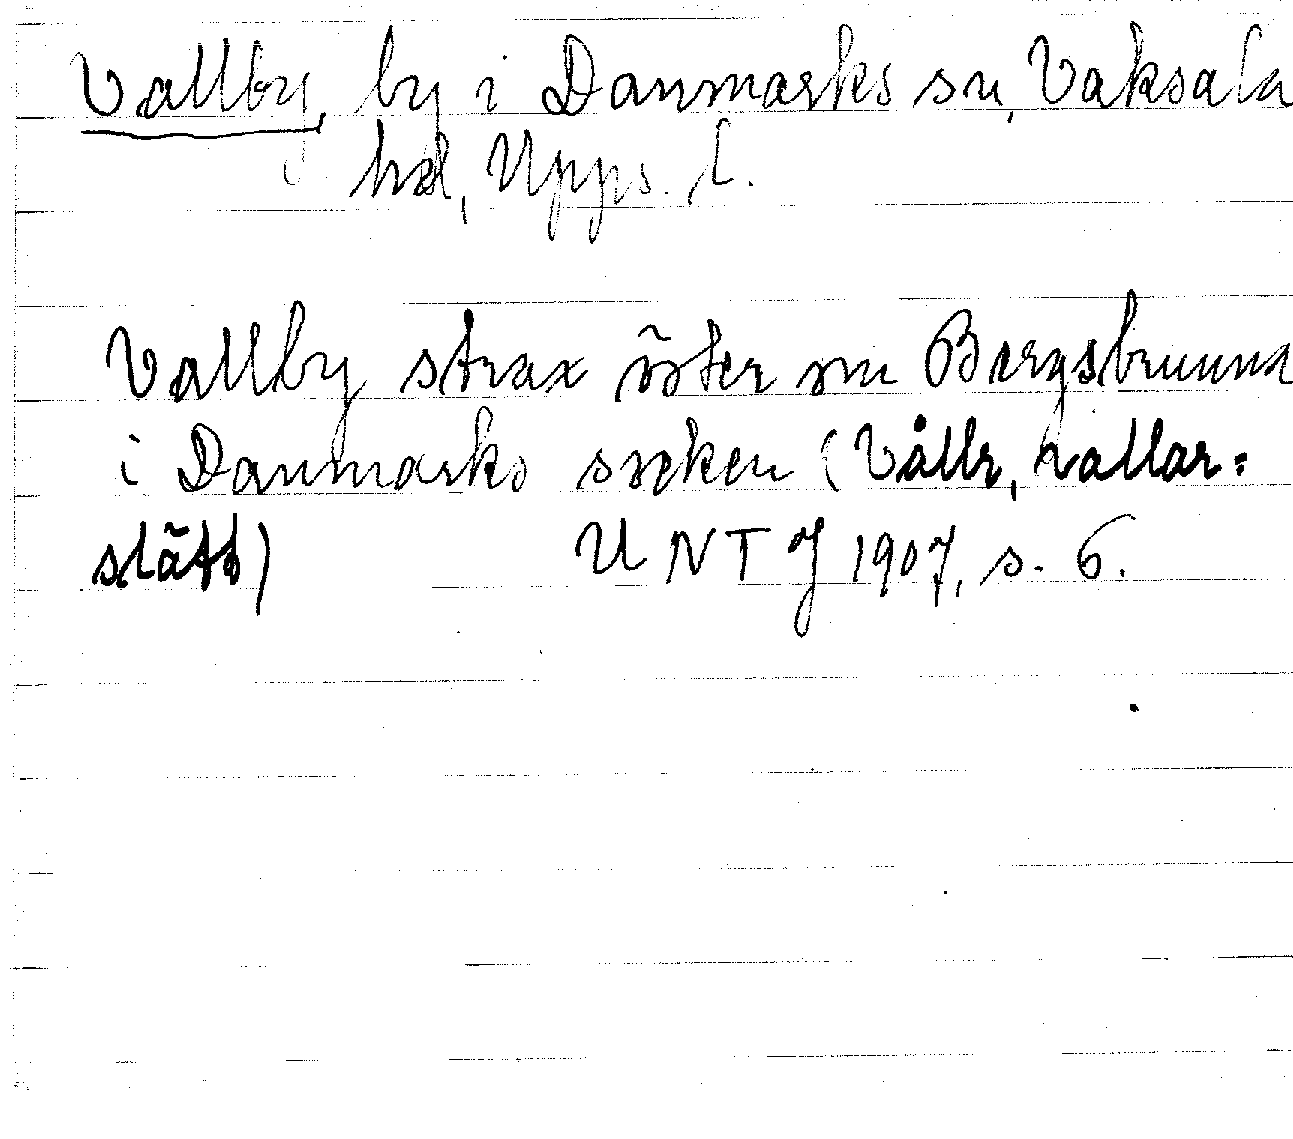 Vallby, by i Danmarks sn, Vaksala
hd, Upps. l.
Vallby strax öster om Bergsbrunna
i Danmarks socken (Vållr, vallar=
slätt) UNTJ 1907, s. 6.